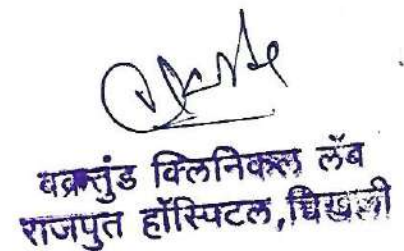 वक्रतुंड क्लिनिकल लॅब
राजपुत हॉस्पिटल,चिखली